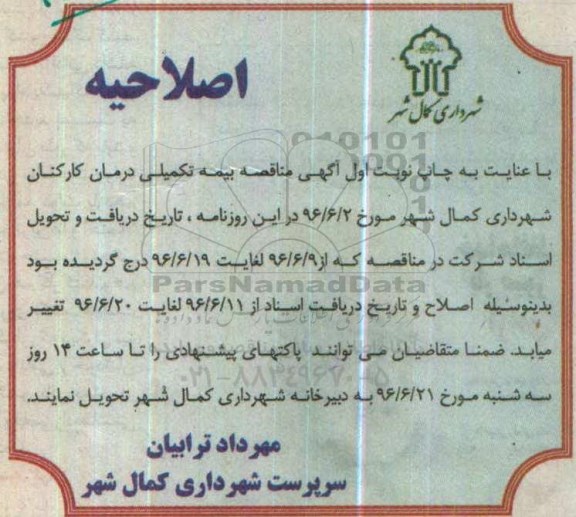 شهرداری کمال شهر
اصلاحیه
با عنایت به چاپ نوبت اول آگهی مناقصه بیمه تکمیلی درمان کارکنان
شهرداری کمال شهر مورخ ۹۶/۶/۲ در این روزنامه ، تاریخ دریافت و تحویل
اسناد شرکت در مناقصه که از ۹۶/۶/۹ لغایت ۹۶/۶/۱۹ درج گردیده بود
بدینوسیله اصلاح و تاریخ دریافت اسناد از ۹۶/۶/۱۱ لغایت ۹۶/۶/۲۰ تغییر
میابد. ضمنا متقاضیان می توانند پاکتهای پیشنهادی را تا ساعت ۱۴ روز
سه شنبه مورخ ۹۶/۶/۲۱ به دبیرخانه شهرداری کمال شهر تحویل نمایند.
مهرداد ترابیان
سرپرست شهرداری کمال شهر
ParsNamadData